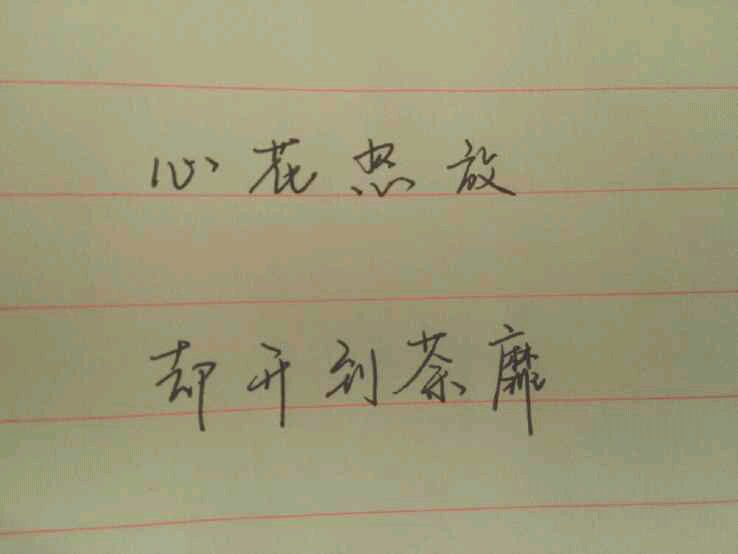 心花怒放
却开到荼靡